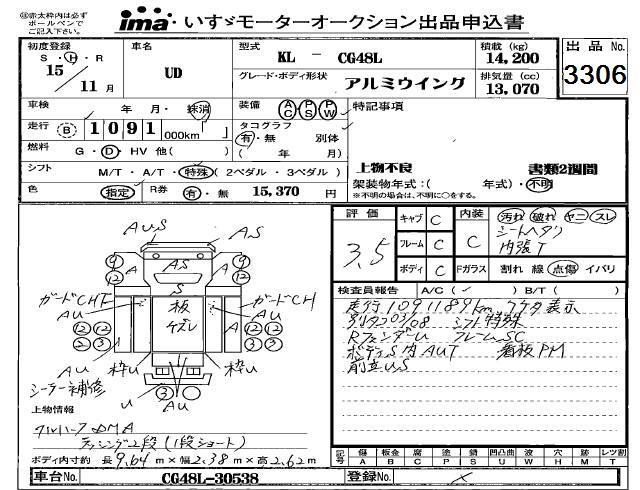 ㊟赤太枠内は必ず
ボールペンで
ご記入下さい。
ima・いすゞモーターオークション出品申込書
初度登録 車名 型式 KL - CG48L 積載 (kg) 14,200 出品 No. 3306
S・H・R 15 / 11 月 UD グレード・ボディ形状 アルミウイング 排気量 (cc) 13,070
車検 年 月・抹消 装備 AC PS PW 特記事項
走行 B 1091 000km タコグラフ 有・無 別体
燃料 G・D・HV 他( ) ( 年 月) 上物不良 書類2週間
シフト M/T・A/T・特殊(2ペダル・3ペダル) 架装物年式:( 年式)・不明
※不明の場合は、不明に○をする。
色 指定 R券 有・無 15,370 円
評価 3.5 キャブ C 内装 C 汚れ 破れ ヤニ スレ
フレーム C シートヘタリ
内張T
ボディ C Fガラス 割れ 線 点傷 イバリ
検査員報告 A/C( ) ・ B/T( )
走行1091189km
別タコ03/08 シフト特殊
Rフェンダーリ フレームSC
ボディS内AUT 看板PM
前立US
AUS AS
A AS A
S
ガードCH 板 ガードCH
AU ケズレ AU
A A
AU 枠U 枠U AU
シーラー補修 U
AU
上物情報
ラッシング2段(1段ショート)
ボディ内寸 約 長 9.64 m × 幅 2.38 m × 高 2.62 m
記号 傷 A 板金 B 腐 C 塗 P 錆 S 凹凸曲 U 波 W 穴 H 跡 M レツ割 T
車台No. CG48L-30538 登録No.